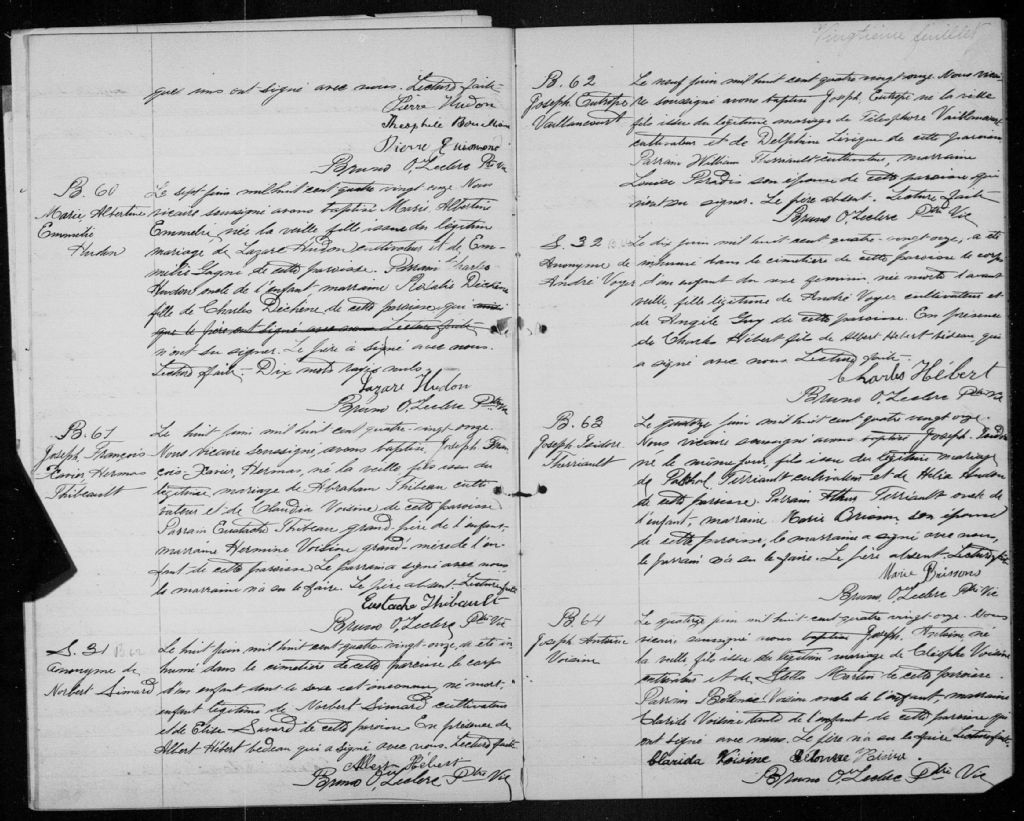 ques uns ont signé avec nous. Lecture faite
Pierre Hudon
Theophile
Pierre
Bruno O. Leclerc Ptre Vic
B. 60
Marie Albertine
Emmélie
Hudon
Le sept juin mil huit cent quatre vingt onze Nous
vicaire soussigné avons baptisé Marie Albertine
Emmelie, née la veille fille issue du légitime
mariage de Lazare Hudon cultivateur et de Em-
mélie Gagné de cette paroisse. Parrain Charles
Hudon oncle de l'enfant marraine Rosalie Dichêne
fille de Charles Dichêne de cette paroisse qui ainsi
que le père ont signé avec nous Lecture faite
n'ont su signer. Le père à signé avec nous.
Lecture faite - Dix mots rayés nuls.
Lazare Hudon
Bruno O. Leclerc Ptre Vic
B. 61
Joseph François
Xavier Hermas
Thibeault
Le huit juin mil huit cent quatre-vingt-onze
Nous vicaire soussigné, avons baptisé, Joseph Fran-
çois-Xavier, Hermas, né la veille fils issu du
légitime mariage de Abraham Thibeau culti-
vateur et de Claudia Voisine de cette paroisse
Parrain Eustache Thibeau grand-père de l'enfant,
marraine Hermine Voisine grand-mère de l'en-
fant de cette paroisse Le parrain a signé avec nous
la marraine n'a su le faire. Le père absent. Lecture faite
Eustache Thibault
Bruno O. Leclerc Ptre Vic
S. 31
Anonyme de
Norbert Simard
Le huit juin mil huit cent quatre-vingt-onze, a été in-
humé dans le cimetière de cette paroisse le corps
d'un enfant dont le sexe est inconnu, né mort,
enfant légitime de Norbert Simard cultivateur
et de Elise Savard de cette paroisse En présence de
Albert Hébert bedeau qui a signé avec nous. Lecture faite
Albert Hebert
Bruno O. Leclerc Ptre Vic
Vingtième feuillet
B. 62
Joseph Eutrope
Vaillancourt
Le neuf juin mil huit cent quatre vingt onze. Nous vicai-
re soussigné avons baptisé Joseph, Eutrope né la veille
fils issu du légitime mariage de Télesphore Vaillancourt
cultivateur et de Delphine Lévêque de cette paroisse
Parrain William Therriault cultivateur, marraine
Louise Paradis son épouse de cette paroisse qui
n'ont su signer. Le père absent. Lecture faite
Bruno O. Leclerc Ptre Vic
S. 32
Anonyme de
André Voyer
Le dix juin mil huit cent quatre-vingt onze, a été
inhumé dans le cimetière de cette paroisse le corps
d'un enfant du sexe féminin né morte l'avant
veille, fille légitime de André Voyer cultivateur et
de Angèle Guy de cette paroisse. En présence
de Charles Hébert fils de Albert Hébert bédeau, qui
a signé avec nous Lecture faite
Charles Hébert
Bruno O. Leclerc Ptre Vic
B. 63
Joseph Isidore
Thérriault
Le quatorze juin mil huit cent quatre vingt onze
Nous vicaire soussigné avons baptisé Joseph, Isidore
né le même jour, fils issu du légitime mariage
de Terriault cultivateur et de Hudon
de cette paroisse Parrain Terriault oncle de
l'enfant, marraine Marie Brisson son épouse
de cette paroisse, la marraine a signé avec nous,
le parrain n'a su le faire. Le père absent. Lecture faite
Marie Brissons
Bruno O. Leclerc Ptre Vic
B 64
Joseph Antoine
Voisine
Le quatorze juin mil huit cent quatre vingt onze Nous
vicaire soussigné avons baptisé Joseph, Antoine né
la veille fils issu du légitime mariage de Cléophe Voisine
cultivateur et de Stella Martin de cette paroisse
Parrain Voisine oncle de l'enfant marraine
Claride Voisine tante de l'enfant de cette paroisse qui
ont signé avec nous. Le père n'a su le faire Lecture faite
Clarida Voisine Voisine
Bruno O. Leclerc Ptre Vic